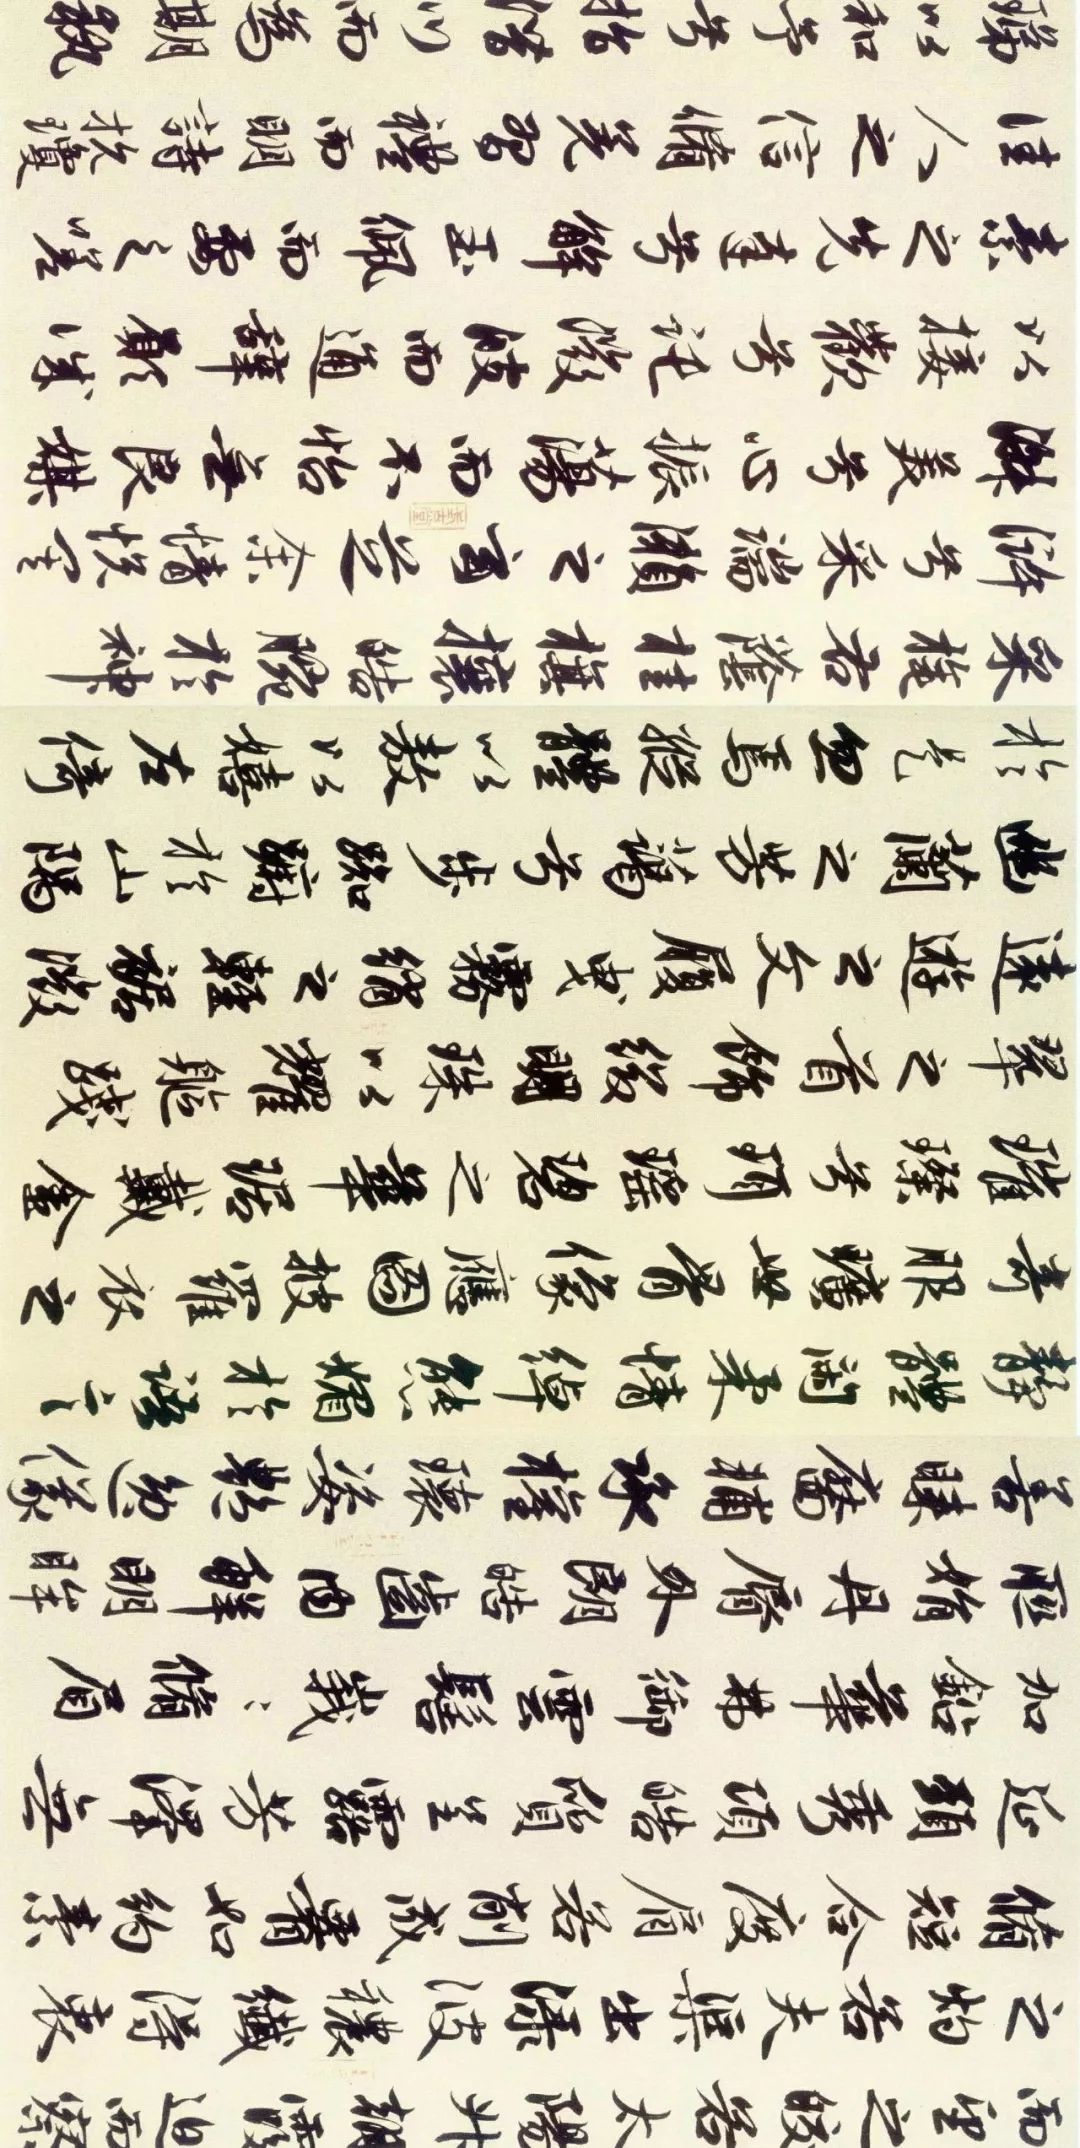 而望之皎若太陽升朝霞迫而察
之灼若夫渠出淥波襛纖得衷
脩短合度肩若削成腰如約素
延頸秀項皓質呈露芳澤無
加鉛華弗御雲髻峨峨脩眉
聯娟丹脣外朗皓齒內鮮明眸
善睞靨輔承權瓌姿艷逸儀
靜體閑柔情綽態媚於語言
奇服曠世骨像應圖披羅衣之
璀粲兮珥瑤碧之華琚戴金
翠之首飾綴明珠以耀軀踐
遠遊之文履曳霧綃之輕裾微
幽蘭之芳藹兮步踟躕於山隅
於是忽焉縱體以遨以嬉左倚
采旄右蔭桂旗攘皓腕於神
滸兮采湍瀨之玄芝余情悅其
淑美兮心振蕩而不怡無良媒
以接歡兮託微波而通辭願誠
素之先達兮解玉佩而要之嗟
佳人之信脩羌習禮而明詩抗瓊
珶以和予兮指潛川而為期執